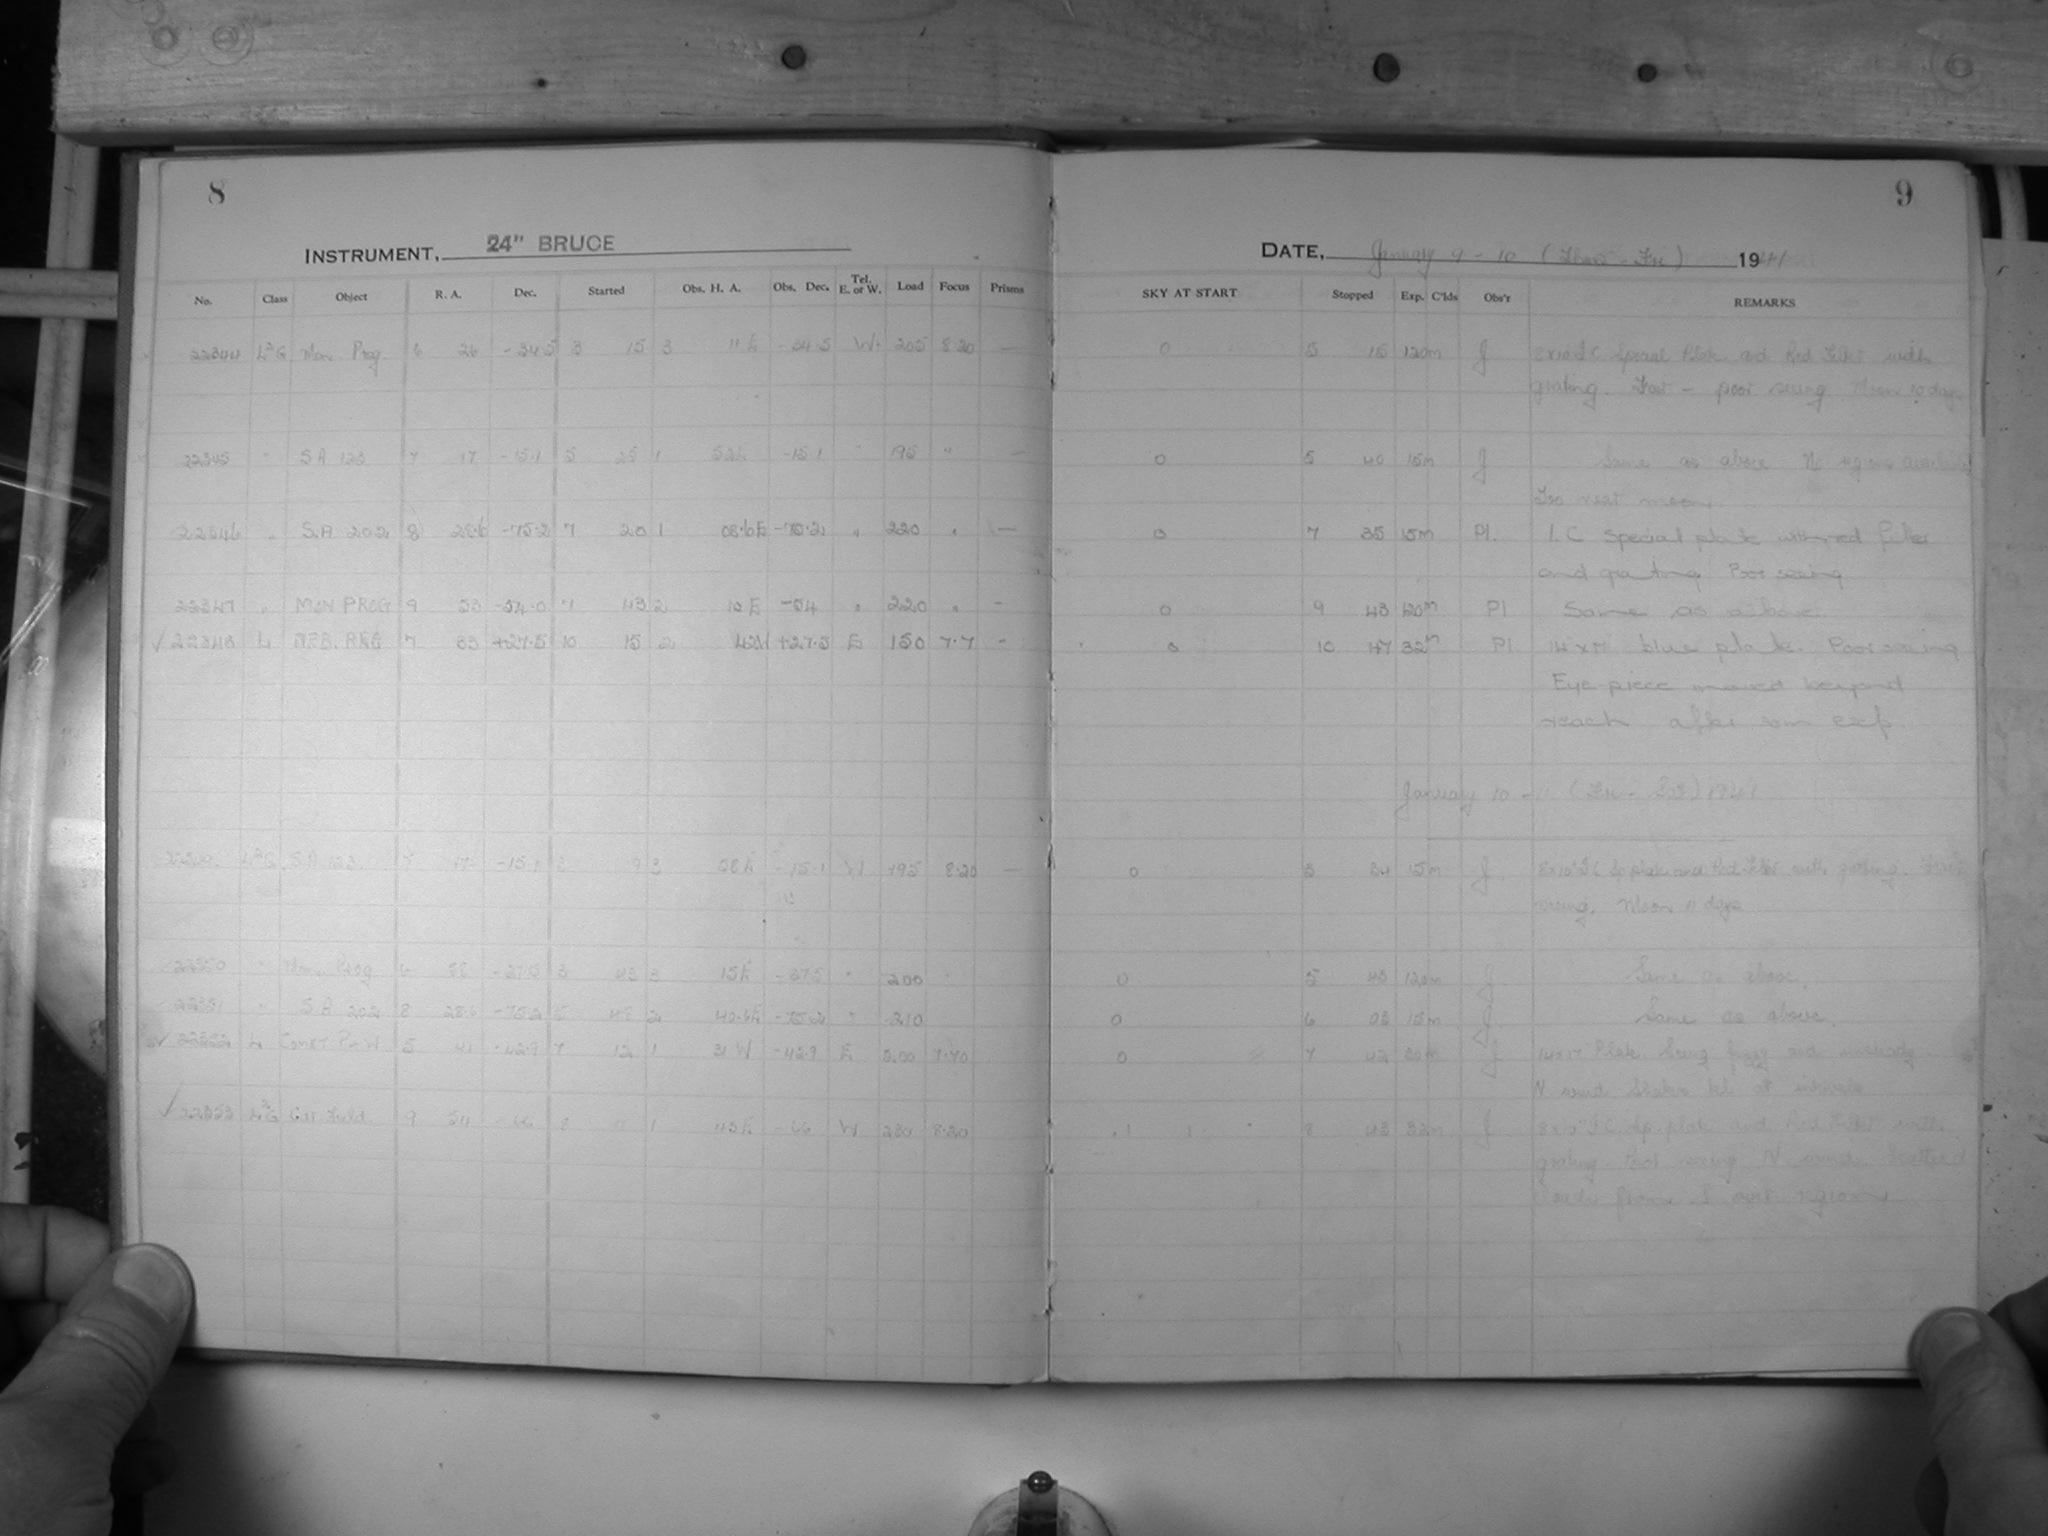 8
INSTRUMENT, 24" BRUCE
No. Class Object R. A. Dec. Started Obs. H. A. Obs. Dec. Tel. E. or W. Load Focus Prisms
22344 Mon Prog 6 26 -34.5 3 15 3 11 E -34.5 W. 205 8.20 —
22345 " SA 123 7 17 -15.1 5 25 1 52E -15.1 " 195 " —
22346 " S.A 202 8 28.6 -75.2 7 20 1 08.6E -75.2 " 220 " —
22347 " MON PROG 9 53 -54.0 7 43 2 10 E -54 " 220 " -
✓ 22348 L 7 +27.5 10 15 2 +27.5 E 150 7.7 -
SA 123 7 17 -15.1 3 9 3 58E -15.1 W 195 8.20 —
22350 " Mon. Prog 6 -37.5 3 43 3 15E -37.5 " 200
22351 " SA 202 8 28.6 -75.2 5 48 2 40.6E -75.2 " 210
✓ 22352 L 5 41 -42.9 7 12 1 31 W -42.9 E 7.70
✓ 22353 9 54 -66 8 11 1 43E -66 W 230 8.20
9
DATE, January 9 - 10 (Thur - Fri) 1941
SKY AT START Stopped Exp. C'lds Obs'r REMARKS
0 5 15 120m J 8x10 I C Special Plate and Red Filter with
grating. Fair - poor seeing Moon 10 days
0 5 40 15m J Same as above No regions available
next moon
0 7 35 15m Pl. I. C Special plate with red filter
and grating Poor seeing
0 9 43 120m Pl Same as above
0 10 47 32m Pl 14 x 17 blue plate. Poor seeing
Eye piece moved beyond
reach after exp.
January 10 - 11 (Fri - Sat) 1941
0 3 24 15m J 8x10 I C Sp plate and Red Filter with grating.
seeing. Moon 11 days
0 5 43 120m J Same as above.
0 6 03 15m J Same as above.
0 7 42 30m J 14x17 Plate. Seeing fuzzy and unsteady
N wind Shakes tel. at intervals
1 1 8 43 32m J 8x10 I C Sp. plate and Red Filter with
grating. Poor seeing N wind. Scattered
clouds from S